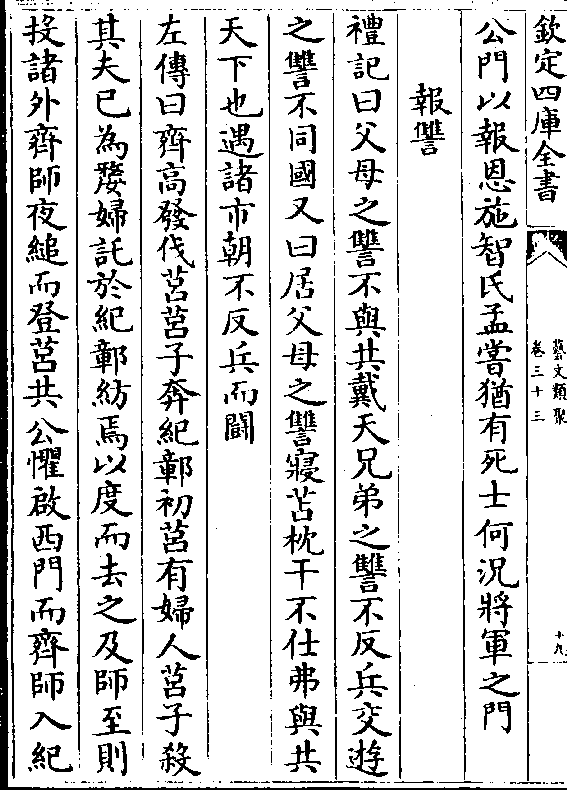 欽定四庫全書
藝文類聚
卷三十三
十九
公門以報恩施智氏孟嘗猶有死士何況將軍之門
報讐
禮記曰父母之讐不與共戴天兄弟之讐不反兵交遊
之讐不同國又曰居父母之讐寢苫枕干不仕弗與共
天下也遇諸市朝不反兵而鬬
左傳曰齊高發伐莒莒子奔紀鄣初莒有婦人莒子殺
其夫已為嫠婦託於紀鄣紡焉以度而去之及師至則
投諸外齊師夜縋而登莒共公懼啟西門而齊師入紀